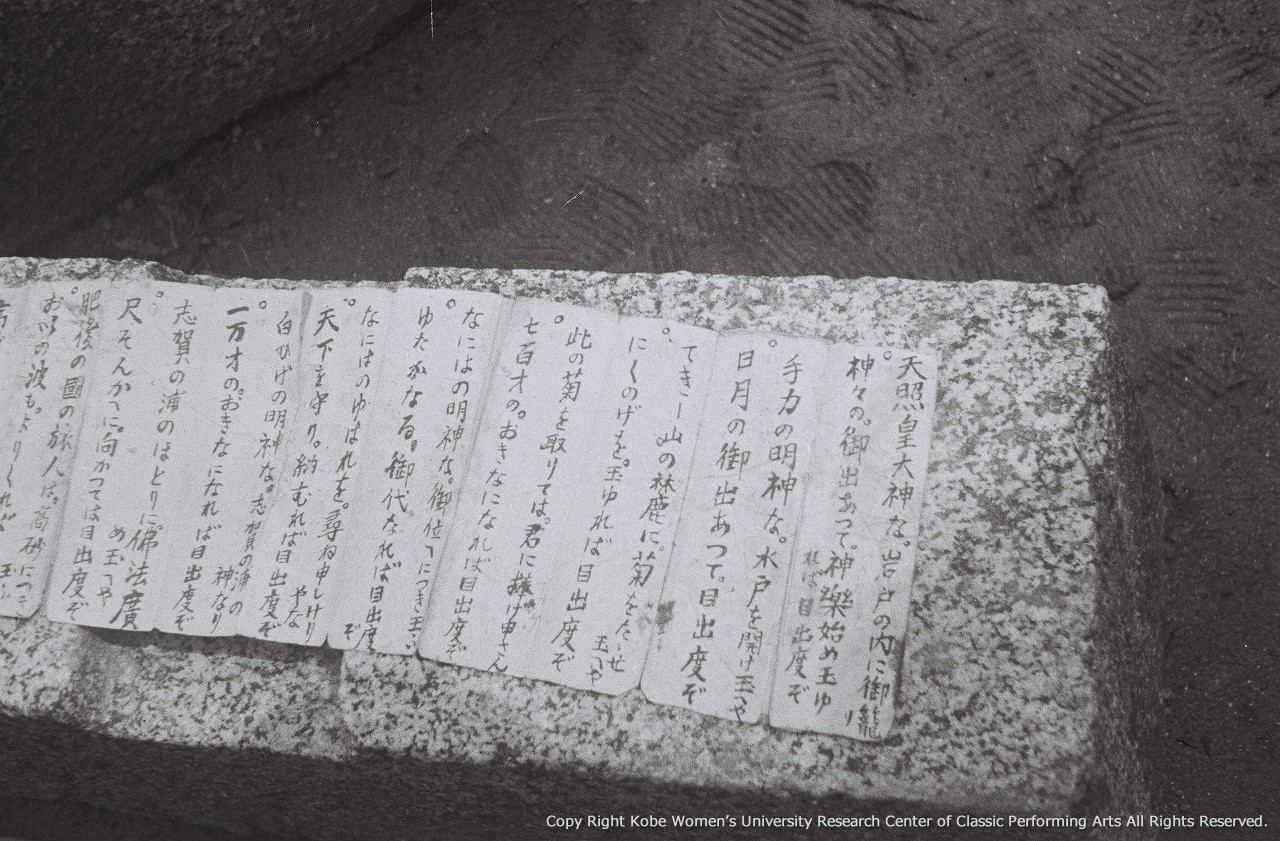 天照皇大神な。岩戸の内に御籠り
神々の。御出あつて。神樂始め玉ゆ
れば目出度ぞ
手力の明神な。水戸を開け玉へや
日月の御出あつて。目出度ぞ
てきー山の林鹿に。菊をたゝせ
にしのげを。玉ゆれば目出度ぞ
此の菊を取りては。君に捧げ申さん
七百才の。おきなになれば目出度ぞ
なにはの明神な。御位へにつき玉へ
ゆたかなる。御代なれば目出度ぞ
なにはのゆはれを。尋ね申しけり
天下を守り。納むれば目出度ぞ
白ひげの明神な。志賀の浦の神なり
一万才の。おきなになれば目出度ぞ
志賀の浦のほとりに。佛法廣め玉へや
尺そんかへに。向かつては目出度ぞ
肥後の國の旅人は。高砂につき
お以の波も。よりくれば
Copy Right Kobe Women's University Research Center of Classic Performing Arts All Rights Reserved.